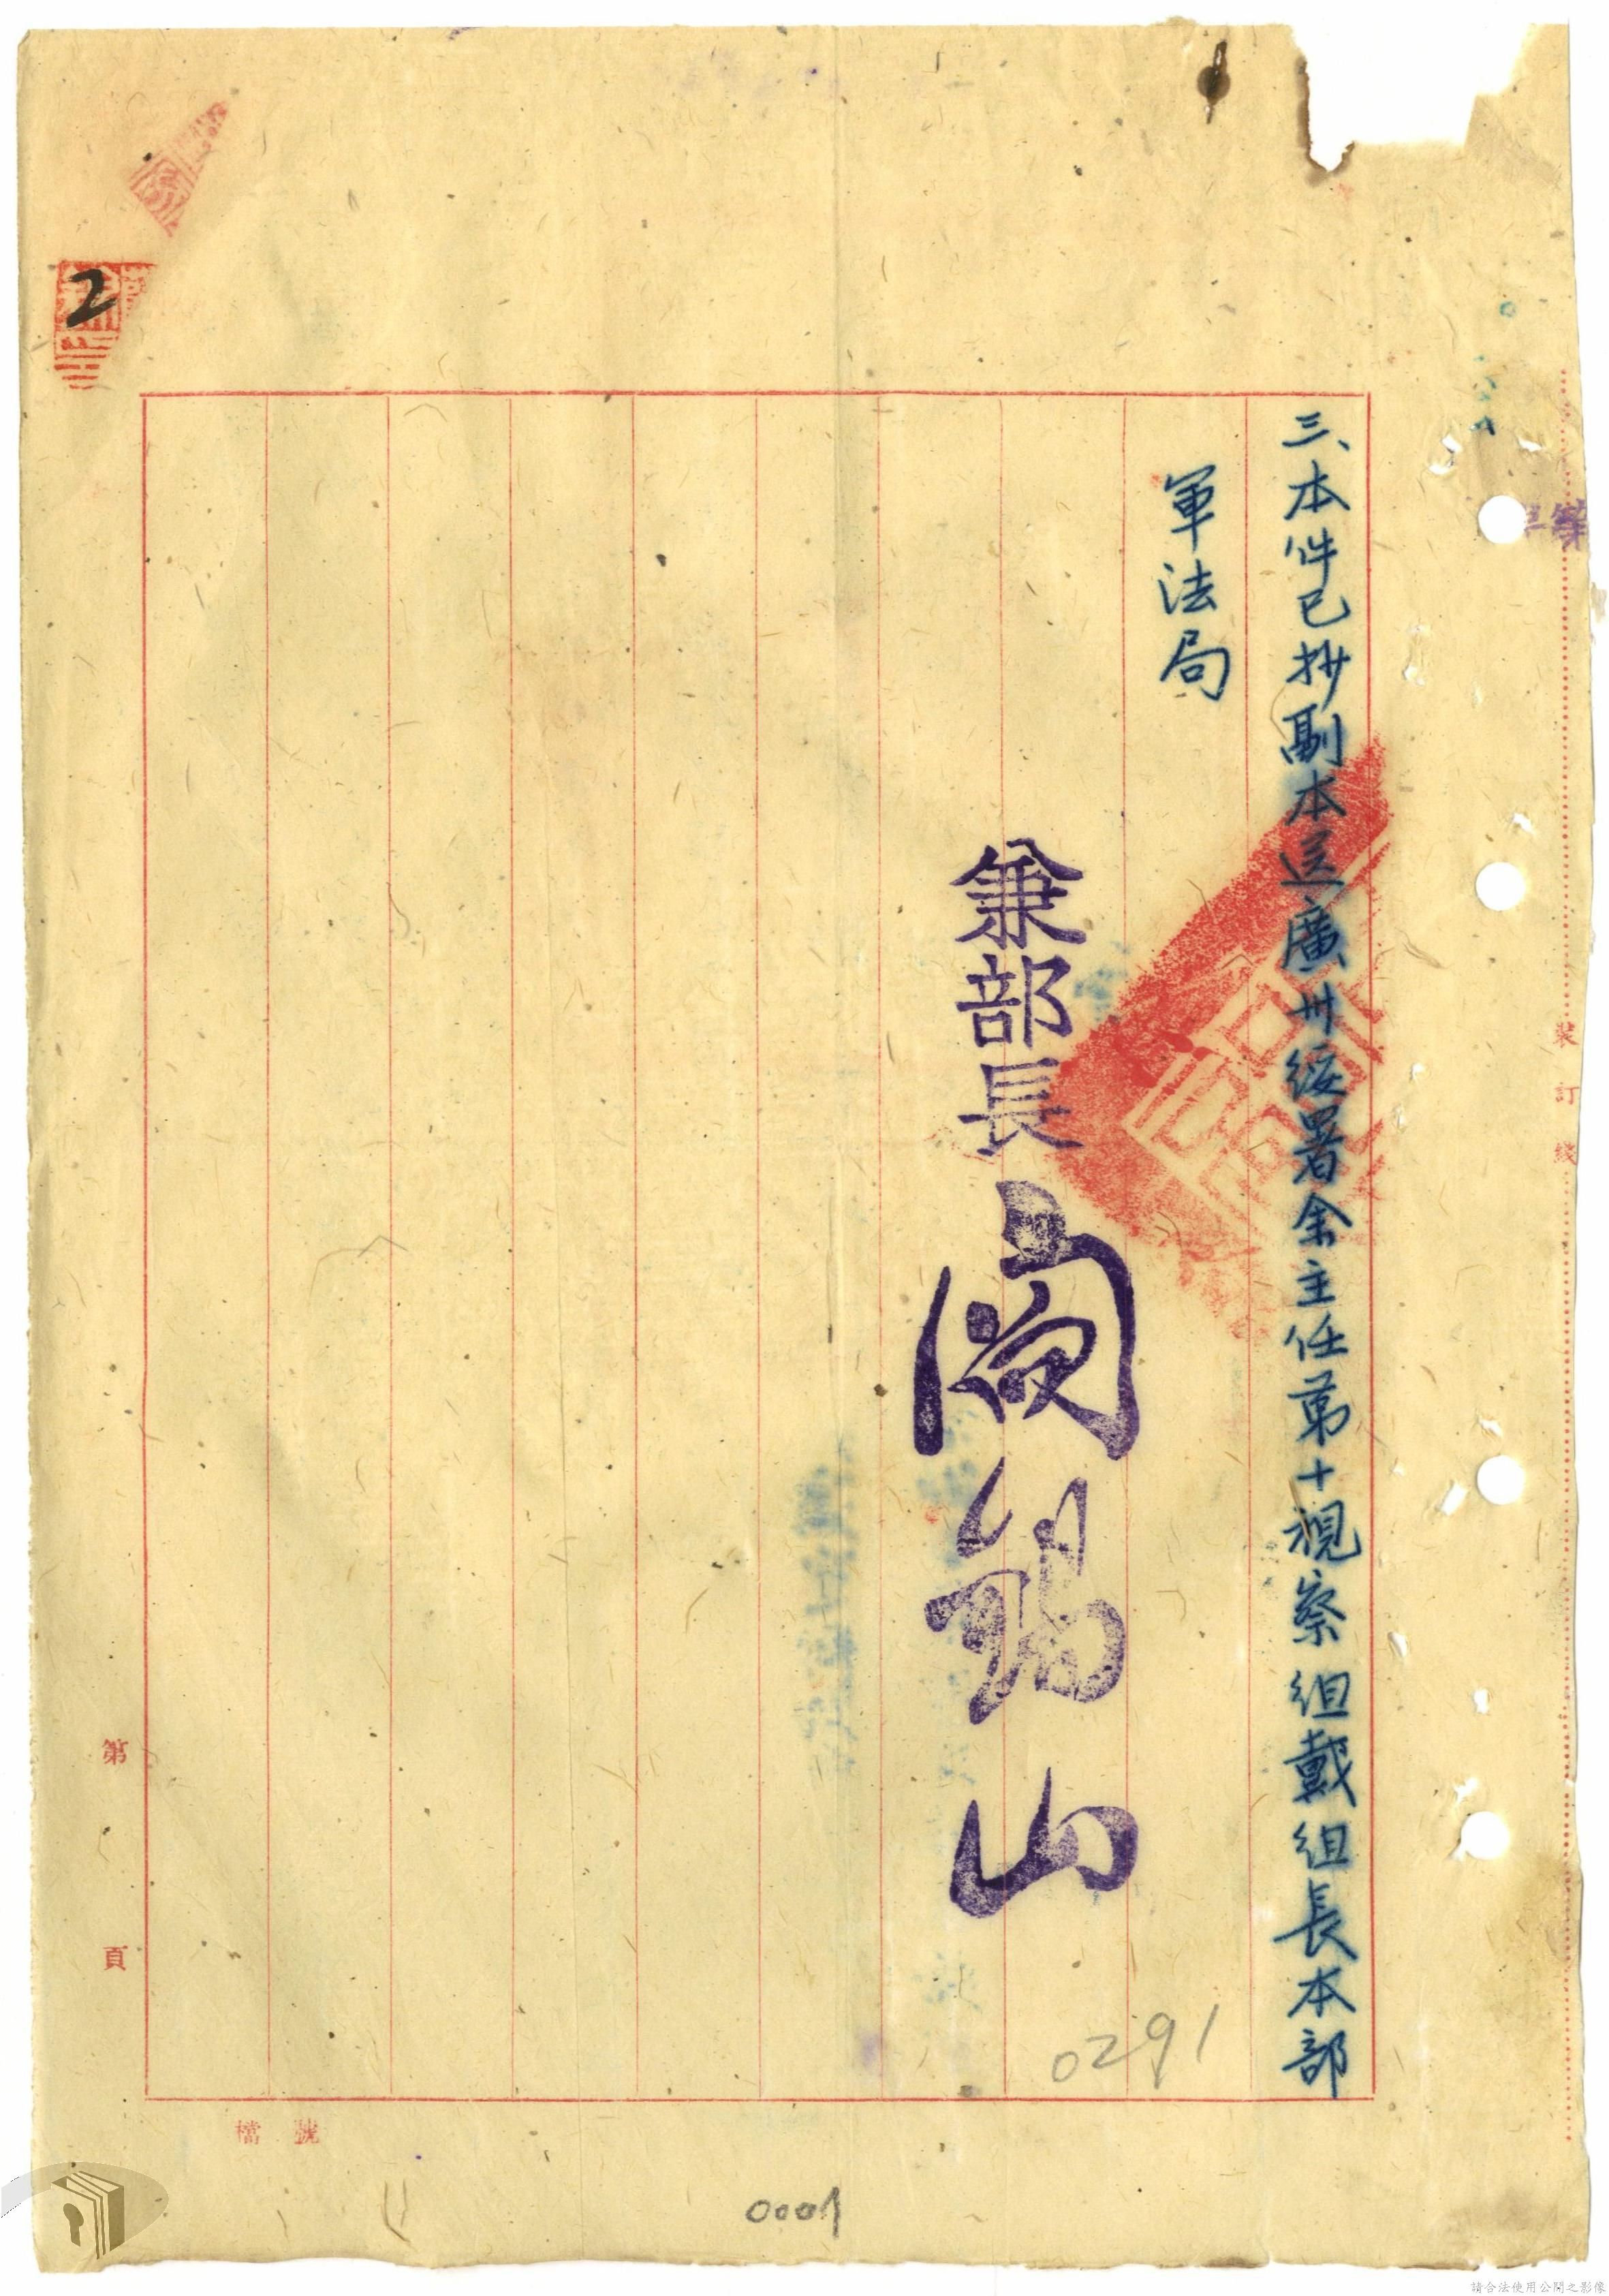 三、本件已抄副本送廣州綏署余主任第十視察組戴組長本部
軍法局
兼部長閻錫山
0291
2
裝訂線
第 頁
檔號
0001
請合法使用公開之影像